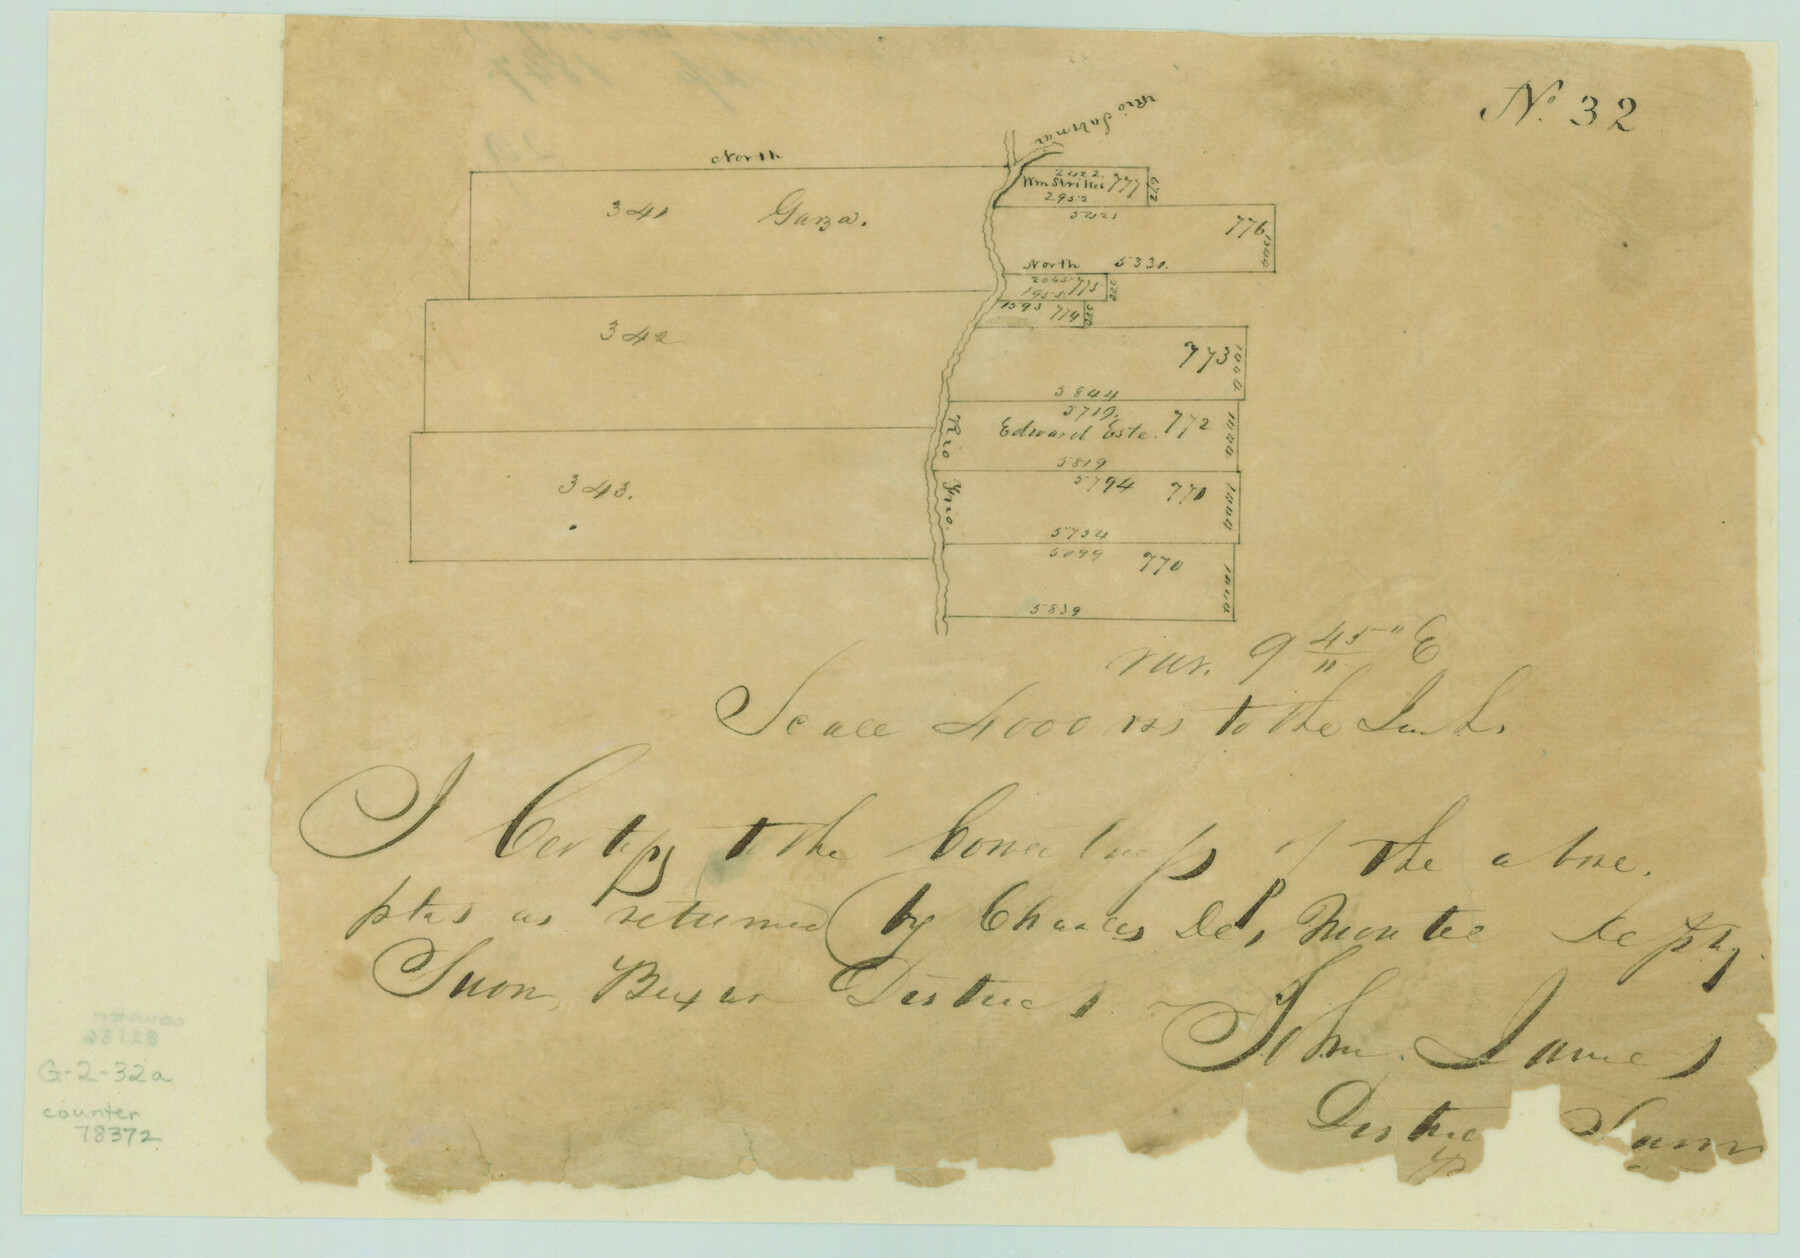 No. 32
Rio Sabinas
North
341 Garza.
2422.
Wm Striker 777
672
2952
5421
776
1344
North 5331.
2065 775
500
1955.
1593 714
500
342
773
1000
5844
5719.
Edward Este. 772
5819
Rio Frio.
343.
5794 771
5754
5099 770
5839
var. 9 45" E
"
Scale 4000 vrs to the Inch.
I Certify to the Correctness of the above.
plas as returned by Charles De Montel Depty
Suvr, Bexar District.
John James
District Surv
G-2-32a
counter
78372
counter
82136